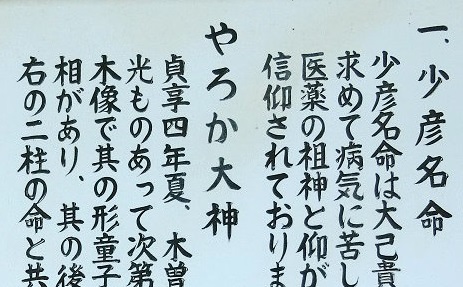 一、少彦名命
少彦名命は大己貴
求めて病気に苦し
医薬の祖神と仰が
信仰されておりま
やろか大神
貞享四年夏、木曽
光ものあって次第
木像で其の形童子
相があり、其の後
右の二柱の命と共